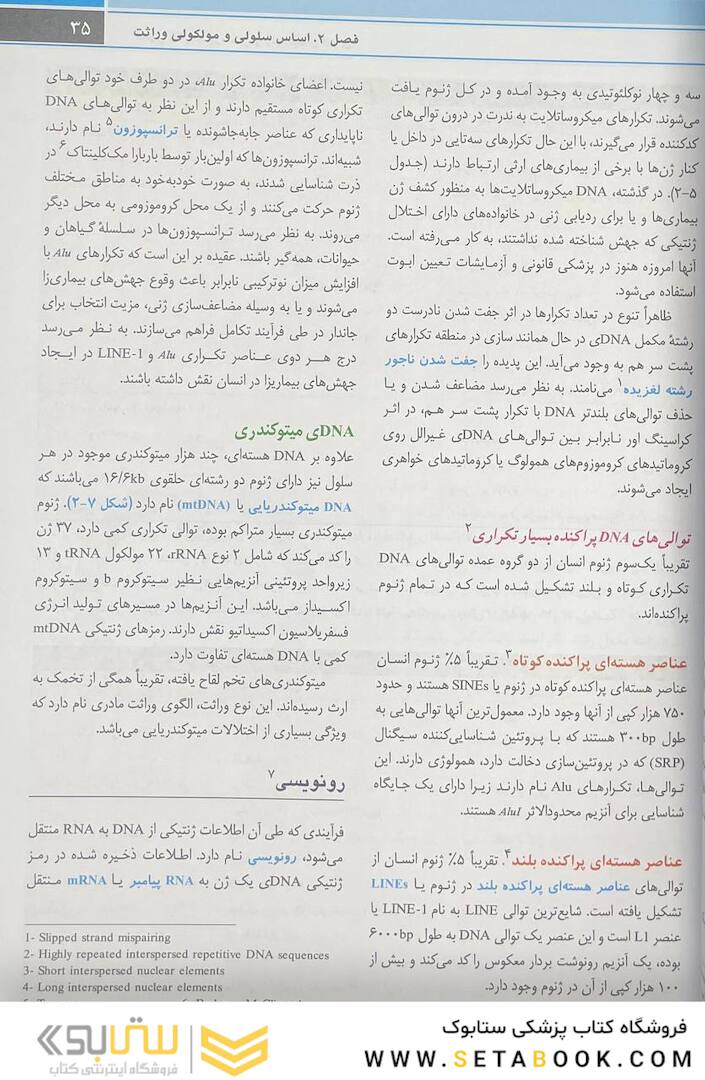 فصل ۲. اساس سلولی و مولکولی وراثت
۳۵
سه و چهار نوکلئوتیدی به وجود آمده و در کل ژنوم یافت
می‌شوند. تکرارهای میکروساتلایت به ندرت در درون توالی‌های
کدکننده قرار می‌گیرند، با این حال تکرارهای سه‌تایی در داخل یا
کنار ژن‌ها با برخی از بیماری‌های ارثی ارتباط دارند (جدول
۵-۲). در گذشته، DNA میکروساتلایت‌ها به منظور کشف ژن
بیماری‌ها و یا برای ردیابی ژنی در خانواده‌های دارای اختلال
ژنتیکی که جهش شناخته شده نداشتند، به کار می‌رفته است.
آنها امروزه هنوز در پزشکی قانونی و آزمایشات تعیین ابوت
استفاده می‌شود.
ظاهراً تنوع در تعداد تکرارها در اثر جفت شدن نادرست دو
رشتهٔ مکمل DNAی در حال همانند سازی در منطقه تکرارهای
پشت سر هم به وجود می‌آید. این پدیده را جفت شدن ناجور
رشته لغزیده۱ می‌نامند. به نظر می‌رسد مضاعف شدن و یا
حذف توالی‌های بلندتر DNA با تکرار پشت سر هم، در اثر
کراسینگ اور نابرابر بین توالی‌های DNAی غیرالل روی
کروماتیدهای کروموزوم‌های همولوگ یا کروماتیدهای خواهری
ایجاد می‌شوند.
توالی‌های DNA پراکنده بسیار تکراری۲
تقریباً یک‌سوم ژنوم انسان از دو گروه عمده توالی‌های DNA
تکراری کوتاه و بلند تشکیل شده است که در تمام ژنوم
پراکنده‌اند.
عناصر هسته‌ای پراکنده کوتاه۳. تقریباً ۵٪ ژنوم انسان
عناصر هسته‌ای پراکنده کوتاه در ژنوم یا SINEs هستند و حدود
۷۵۰ هزار کپی از آنها وجود دارد. معمول‌ترین آنها توالی‌هایی به
طول ۳۰۰bp هستند که با پروتئین شناسایی‌کننده سیگنال
(SRP) که در پروتئین‌سازی دخالت دارد، همولوژی دارند. این
توالی‌ها، تکرارهای Alu نام دارند زیرا دارای یک جایگاه
شناسایی برای آنزیم محدودالاثر AluI هستند.
عناصر هسته‌ای پراکنده بلند۴. تقریباً ۵٪ ژنوم انسان از
توالی‌های عناصر هسته‌ای پراکنده بلند در ژنوم یا LINEs
تشکیل یافته است. شایع‌ترین توالی LINE به نام LINE-1 یا
عنصر L1 است و این عنصر یک توالی DNA به طول ۶۰۰۰bp
بوده، یک آنزیم رونوشت بردار معکوس را کد می‌کند و بیش از
۱۰۰ هزار کپی از آن در ژنوم وجود دارد.
نیست. اعضای خانواده تکرار Alu، در دو طرف خود توالی‌های
تکراری کوتاه مستقیم دارند و از این نظر به توالی‌های DNA
ناپایداری که عناصر جابه‌جاشونده یا ترانسپوزون۵ نام دارند،
شبیه‌اند. ترانسپوزون‌ها که اولین‌بار توسط باربارا مک‌کلینتاک۶ در
ذرت شناسایی شدند، به صورت خودبه‌خود به مناطق مختلف
ژنوم حرکت می‌کنند و از یک محل کروموزومی به محل دیگر
می‌روند. به نظر می‌رسد ترانسپوزون‌ها در سلسلهٔ گیاهان و
حیوانات، همه‌گیر باشند. عقیده بر این است که تکرارهای Alu با
افزایش میزان نوترکیبی نابرابر باعث وقوع جهش‌های بیماری‌زا
می‌شوند و یا به وسیله مضاعف‌سازی ژنی، مزیت انتخاب برای
جاندار در طی فرآیند تکامل فراهم می‌سازند. به نظر می‌رسد
درج هر دوی عناصر تکراری Alu و LINE-1 در ایجاد
جهش‌های بیماریزا در انسان نقش داشته باشند.
DNAی میتوکندری
علاوه بر DNA هسته‌ای، چند هزار میتوکندری موجود در هر
سلول نیز دارای ژنوم دو رشته‌ای حلقوی ۱۶/۶kb می‌باشند که
DNA میتوکندریایی یا (mtDNA) نام دارد (شکل ۷-۲). ژنوم
میتوکندری بسیار متراکم بوده، توالی تکراری کمی دارد، ۳۷ ژن
را کد می‌کند که شامل ۲ نوع rRNA، ۲۲ مولکول tRNA و ۱۳
زیرواحد پروتئینی آنزیم‌هایی نظیر سیتوکروم b و سیتوکروم
اکسیداز می‌باشد. این آنزیم‌ها در مسیرهای تولید انرژی
فسفریلاسیون اکسیداتیو نقش دارند. رمزهای ژنتیکی mtDNA
کمی با DNA هسته‌ای تفاوت دارد.
میتوکندری‌های تخم لقاح یافته، تقریباً همگی از تخمک به
ارث رسیده‌اند. این نوع وراثت، الگوی وراثت مادری نام دارد که
ویژگی بسیاری از اختلالات میتوکندریایی می‌باشد.
رونویسی۷
فرآیندی که طی آن اطلاعات ژنتیکی از DNA به RNA منتقل
می‌شود، رونویسی نام دارد. اطلاعات ذخیره شده در رمز
ژنتیکی DNAی یک ژن به RNA پیامبر یا mRNA منتقل
1- Slipped strand mispairing
2- Highly repeated interspersed repetitive DNA sequences
3- Short interspersed nuclear elements
4- Long interspersed nuclear elements
ستابوک
فروشگاه اینترنتی کتاب
فروشگاه کتاب پزشکی ستابوک
WWW.SETABOOK.COM